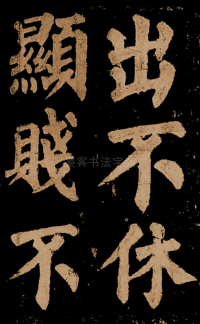 出不休
顯賤不
客书法字